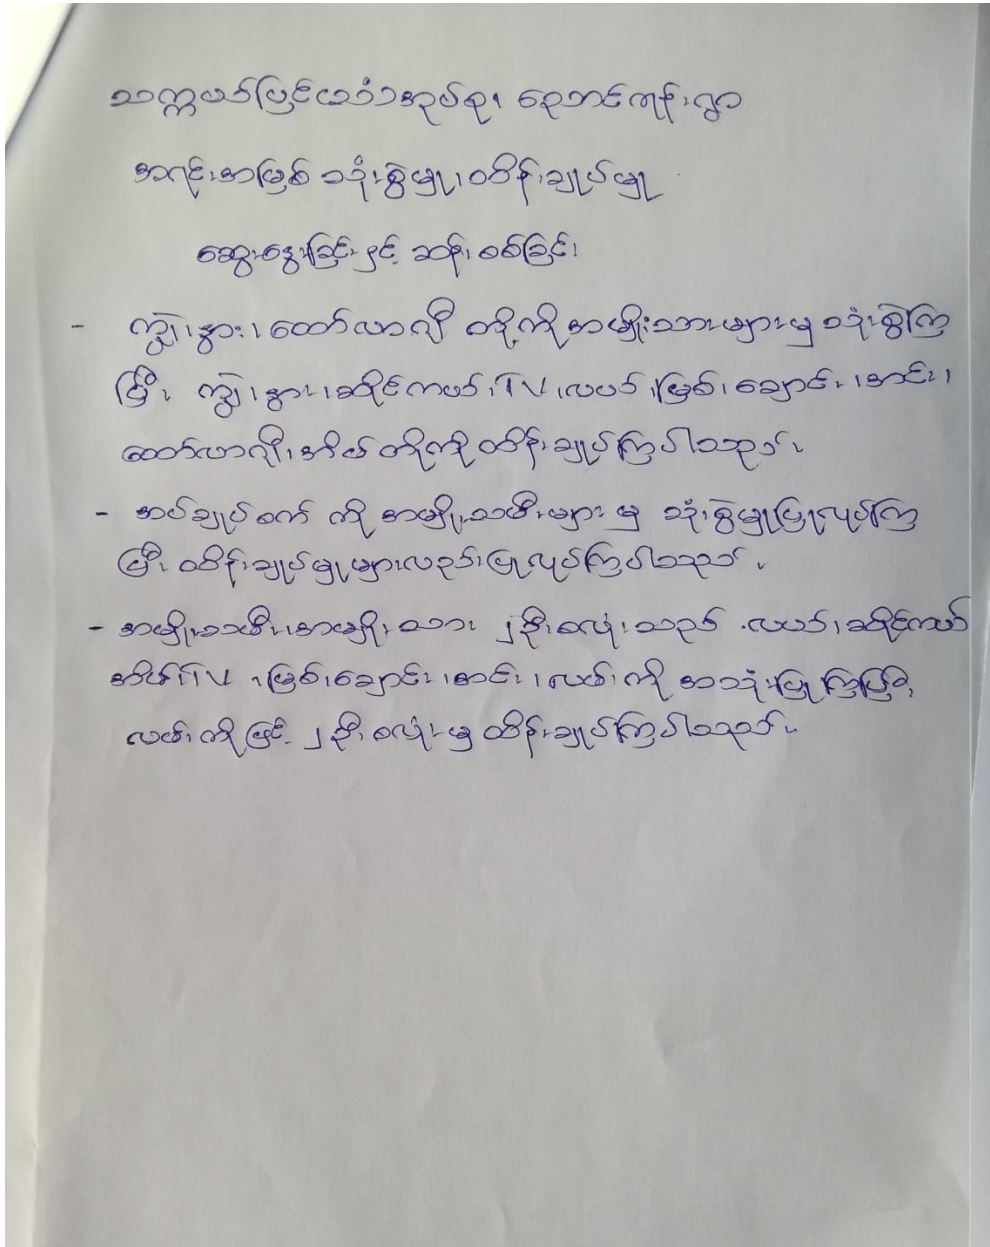 သက္ကယ်ပြင်ယာံ၁အုပ်စု၊ ရေဘင်ကုန်းရွာ
အရင်းအမြစ် သုံးစွဲမှု၊ ထိန်းချုပ်မှု
ဆွေးနွေးခြင်းနှင့် ဆန်းစစ်ခြင်း
- ကျွဲ၊ နွား၊ ထော်လာဂျီ တို့ကို အမျိုးသားများမှ သုံးစွဲကြ
ပြီး ကျွဲ၊ နွား၊ ဆိုင်ကယ်၊ TV ၊ လယ်၊ မြစ်၊ ချောင်း၊ အင်း၊
ထော်လာဂျီ၊ အိမ် တို့ကို ထိန်းချုပ်ကြပါသည်။
- အပ်ချုပ်စက် ကို အမျိုးသမီးများ မှ သုံးစွဲမှုပြုလုပ်ကြ
ပြီး ထိန်းချုပ်မှုများလည်းပြုလုပ်ကြပါသည်။
- အမျိုးသမီး၊ အမျိုးသား ၂ဦးစလုံးသည် လယ်၊ ဆိုင်ကယ်
အိမ် TV ၊ မြစ်၊ ချောင်း၊ အင်း၊ လမ်းကို အသုံးပြုကြပြီး
လမ်းကိုဖြင့် ၂ဦးစလုံးမှ ထိန်းချုပ်ကြပါသည်။